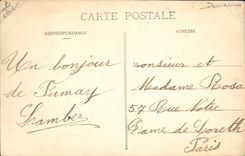 CARTE POSTALE
CORRESPONDANCE
ADRESSE
Un bonjour
de Fumay
Lambert
Monsieur et
Madame Rosa
57 Rue Notre
Dame de Loreth
Paris